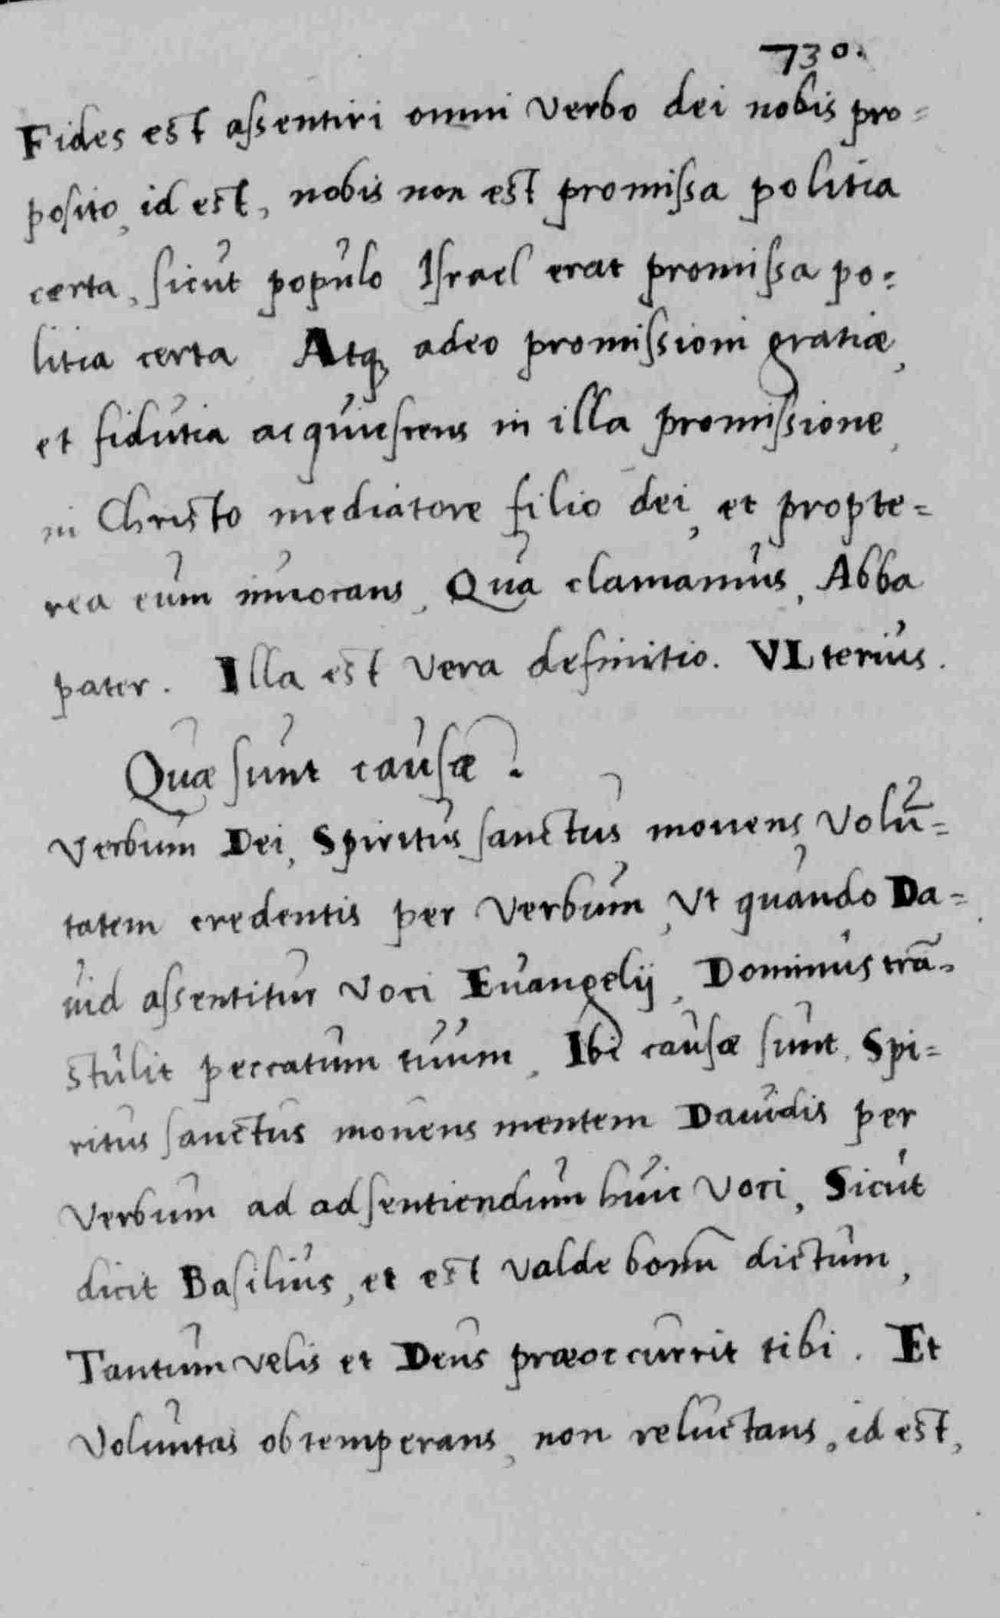 730.
Fides est assentiri omni verbo dei nobis pro=
posito, id est, nobis non est promissa politia
certa, sicut populo Israel erat promissa po=
litia certa Atq₃ adeo promissioni gratiæ,
et fidutia acquiescens in illa promissione,
in Christo mediatore filio dei, et propte=
rea eum invocans, Qua clamamus, Abba
pater. Illa est vera definitio. VLterius.
Quæ sunt causæ?
Verbum Dei, Spiritus sanctus movens volū=
tatem credentis per verbum, Ut quando Da=
uid assentitur voci Euangelij, Dominus trā=
stulit peccatum tuum, Ibi causæ sunt, Spi=
ritus sanctus movens mentem Dauidis per
verbum ad adsentiendum huic voci, Sicut
dicit Basilius, et est valde bonū dictum,
Tantum velis et Deus præoccurrit tibi. Et
voluntas obtemperans, non reluctans, id est,